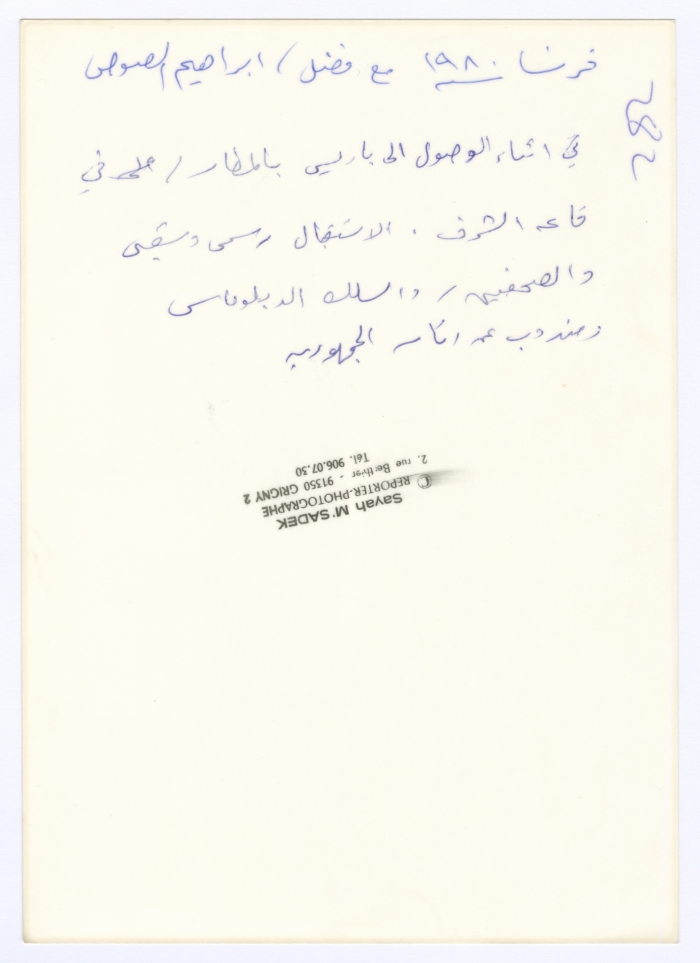 فرنسا ١٩٨٠ مع فضل / ابراهيم الصوص
في اثناء الوصول الى باريس بالمطار / في
قاعه الشرف . الاستقبال رسمى
والصحفيين / والسلك الدبلوماسى
ومندوب عن الجمهوريه
Sayah M'SADEK
© REPORTER-PHOTOGRAPHE
2, rue Berthier - 91350 GRIGNY 2
Tél. 906.07.30